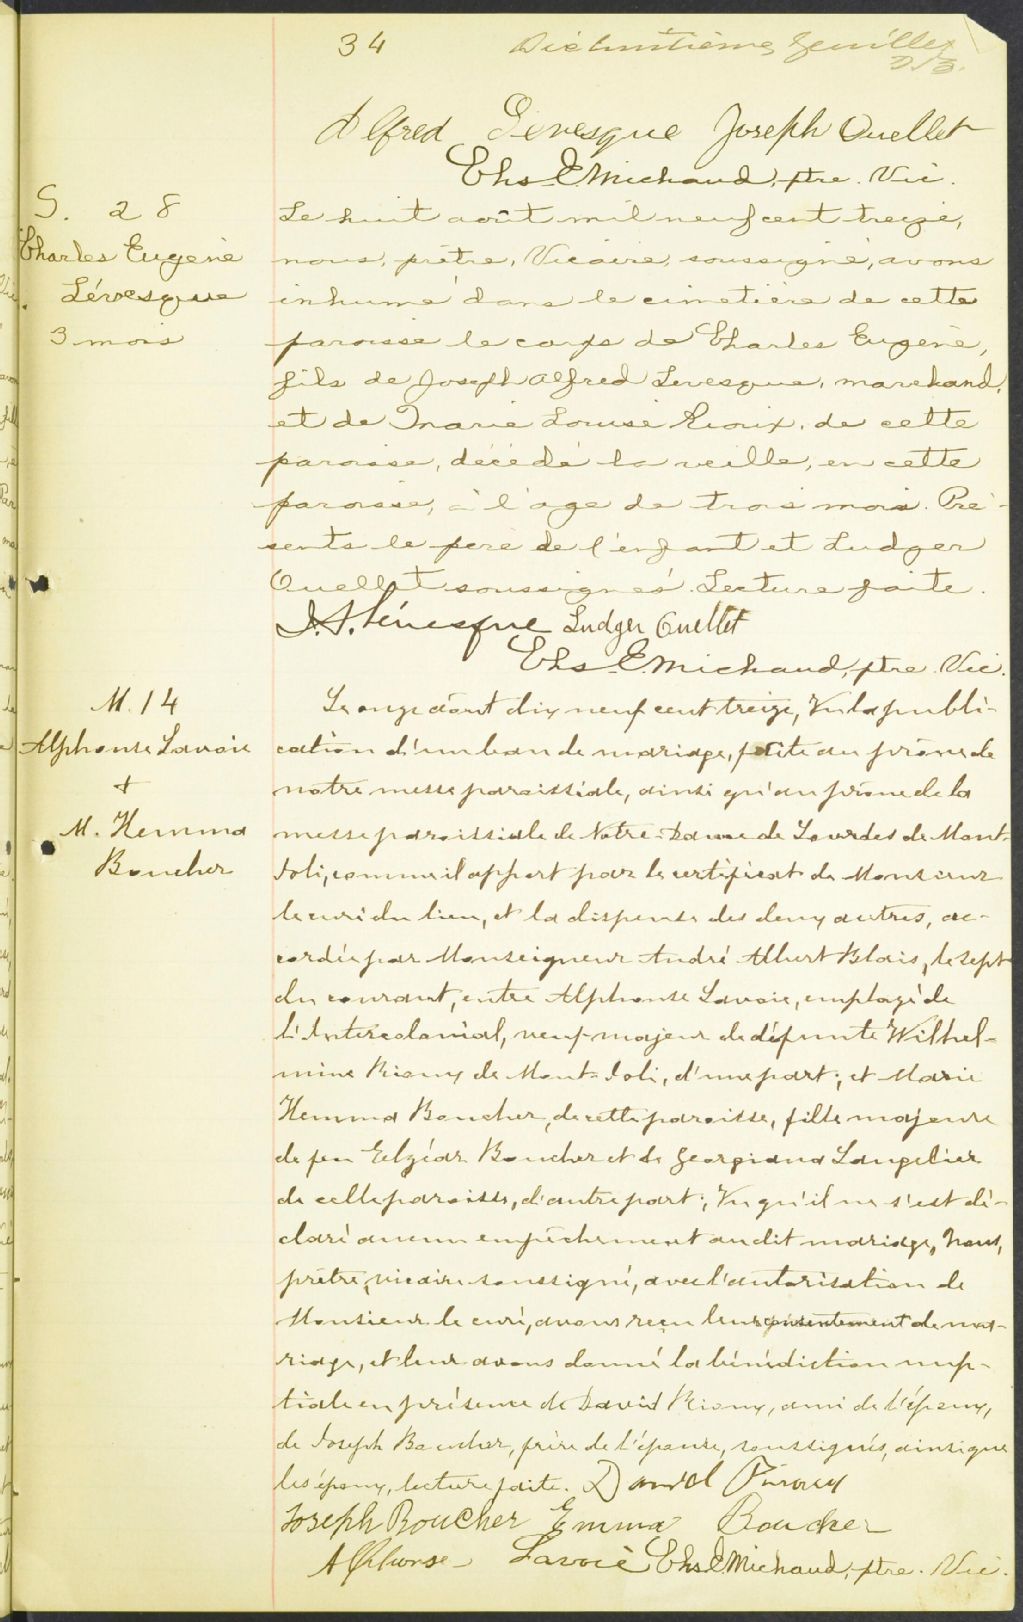 34 Dixhuitième feuillet
Alfred Lévesque Joseph Ouellet
Chs E Michaud, ptre. Vic.
S. 28
Charles Eugène
Lévesque
3 mois
Le huit août mil neuf cent treize,
nous, prêtre, Vicaire, soussigné, avons
inhumé dans le cimetière de cette
paroisse le corps de Charles Eugène,
fils de Joseph Alfred Levesque, marchand,
et de Marie Louise Rioux, de cette
paroisse, décédé la veille, en cette
paroisse, à l'age de trois mois. Pré-
sents le père de l'enfant et Ludger
Ouellet soussignés. Lecture faite.
J. A. Lévesque Ludger Ouellet
Chs E Michaud, ptre. Vic.
M. 14
Alphonse Lavoie
+
M. Hemma
Boucher
Le onze août dix neuf cent treize, Vu la publi-
cation d'un ban de mariage, faite au prône de
notre messe paroissiale, ainsi qu'au prône de la
messe paroissiale de Notre-Dame de Lourdes de Mont-
Joli, comme il appert par le certificat de Monsieur
le curé du lieu, et la dispense des deux autres, ac-
cordée par Monseigneur André Albert Blais, le sept
du courant, entre Alphonse Lavoie, employé de
l'Intercolonial, veuf majeur de défunte Wilhel-
mine Rioux de Mont-Joli, d'une part; et Marie
Hemma Boucher, de cette paroisse, fille majeure
de feu Elzéar Boucher et de Georgiana Langelier
de cette paroisse, d'autre part; Vu qu'il ne s'est dé-
claré aucun empêchement au dit mariage, Nous,
prêtre, vicaire soussigné, avec l'autorisation de
Monsieur le curé, avons reçu leur consentement de ma-
riage, et leur avons donné la bénédiction nup-
tiale en présence de David Rioux, ami de l'époux,
de Joseph Boucher, frère de l'épouse, soussignés, ainsi que
les époux, lecture faite. David Rioux
Joseph Boucher Emma Boucher
Alphonse Lavoie Chs E Michaud, ptre. Vic.